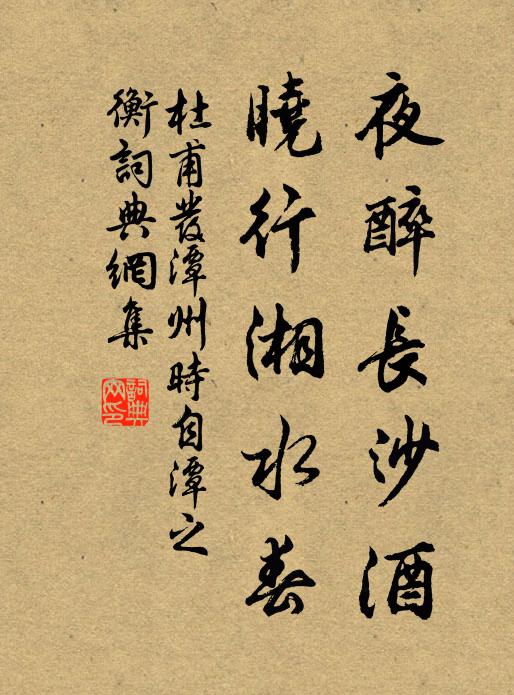 夜醉長沙酒
曉行湘水春
杜甫發潭州時自潭之
衡詞典網集
詞典
网印